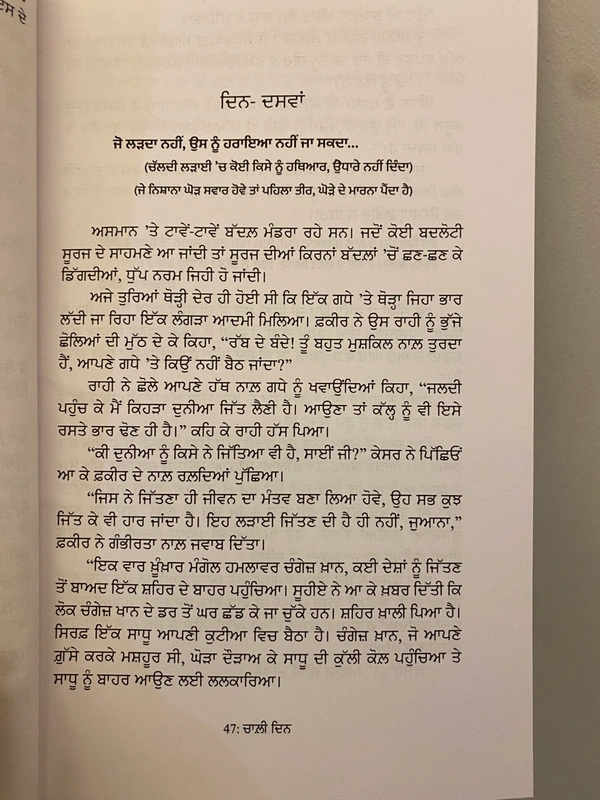 ਇਸ ਦੇ
ਦਿਨ- ਦਸਵਾਂ
ਜੋ ਲੜਦਾ ਨਹੀਂ, ਉਸ ਨੂੰ ਹਰਾਇਆ ਨਹੀਂ ਜਾ ਸਕਦਾ...
(ਚੱਲਦੀ ਲੜਾਈ 'ਚ ਕੋਈ ਕਿਸੇ ਨੂੰ ਹਥਿਆਰ, ਉਧਾਰੇ ਨਹੀਂ ਦਿੰਦਾ)
(ਜੇ ਨਿਸ਼ਾਨਾ ਘੋੜ ਸਵਾਰ ਹੋਵੇ ਤਾਂ ਪਹਿਲਾ ਤੀਰ, ਘੋੜੇ ਦੇ ਮਾਰਨਾ ਪੈਂਦਾ ਹੈ)
ਅਸਮਾਨ 'ਤੇ ਟਾਵੇਂ-ਟਾਵੇਂ ਬੱਦਲ਼ ਮੰਡਰਾ ਰਹੇ ਸਨ। ਜਦੋਂ ਕੋਈ ਬਦਲੋਟੀ
ਸੂਰਜ ਦੇ ਸਾਹਮਣੇ ਆ ਜਾਂਦੀ ਤਾਂ ਸੂਰਜ ਦੀਆਂ ਕਿਰਨਾਂ ਬੱਦਲ਼ਾਂ 'ਚੋਂ ਛਣ-ਛਣ ਕੇ
ਡਿੱਗਦੀਆਂ, ਧੁੱਪ ਨਰਮ ਜਿਹੀ ਹੋ ਜਾਂਦੀ।
ਅਜੇ ਤੁਰਿਆਂ ਥੋੜ੍ਹੀ ਦੇਰ ਹੀ ਹੋਈ ਸੀ ਕਿ ਇੱਕ ਗਧੇ 'ਤੇ ਥੋੜ੍ਹਾ ਜਿਹਾ ਭਾਰ
ਲੱਦੀ ਜਾ ਰਿਹਾ ਇੱਕ ਲੰਗੜਾ ਆਦਮੀ ਮਿਲਿਆ। ਫ਼ਕੀਰ ਨੇ ਉਸ ਰਾਹੀ ਨੂੰ ਭੁੱਜੇ
ਛੋਲਿਆਂ ਦੀ ਮੁੱਠ ਦੇ ਕੇ ਕਿਹਾ, “ਰੱਬ ਦੇ ਬੰਦੇ! ਤੂੰ ਬਹੁਤ ਮੁਸ਼ਕਿਲ ਨਾਲ਼ ਤੁਰਦਾ
ਹੈਂ, ਆਪਣੇ ਗਧੇ 'ਤੇ ਕਿਉਂ ਨਹੀਂ ਬੈਠ ਜਾਂਦਾ?”
ਰਾਹੀ ਨੇ ਛੋਲੇ ਆਪਣੇ ਹੱਥ ਨਾਲ਼ ਗਧੇ ਨੂੰ ਖਵਾਉਂਦਿਆਂ ਕਿਹਾ, “ਜਲਦੀ
ਪਹੁੰਚ ਕੇ ਮੈਂ ਕਿਹੜਾ ਦੁਨੀਆ ਜਿੱਤ ਲੈਣੀ ਹੈ। ਆਉਣਾ ਤਾਂ ਕੱਲ੍ਹ ਨੂੰ ਵੀ ਇਸੇ
ਰਸਤੇ ਭਾਰ ਢੋਣ ਹੀ ਹੈ।” ਕਹਿ ਕੇ ਰਾਹੀ ਹੱਸ ਪਿਆ।
“ਕੀ ਦੁਨੀਆ ਨੂੰ ਕਿਸੇ ਨੇ ਜਿੱਤਿਆ ਵੀ ਹੈ, ਸਾਈਂ ਜੀ?” ਕੇਸਰ ਨੇ ਪਿੱਛਿਓਂ
ਆ ਕੇ ਫ਼ਕੀਰ ਦੇ ਨਾਲ਼ ਰਲ਼ਦਿਆਂ ਪੁੱਛਿਆ।
“ਜਿਸ ਨੇ ਜਿੱਤਣਾ ਹੀ ਜੀਵਨ ਦਾ ਮੰਤਵ ਬਣਾ ਲਿਆ ਹੋਵੇ, ਉਹ ਸਭ ਕੁਝ
ਜਿੱਤ ਕੇ ਵੀ ਹਾਰ ਜਾਂਦਾ ਹੈ। ਇਹ ਲੜਾਈ ਜਿੱਤਣ ਦੀ ਹੈ ਹੀ ਨਹੀਂ, ਜੁਆਨਾ,”
ਫ਼ਕੀਰ ਨੇ ਗੰਭੀਰਤਾ ਨਾਲ਼ ਜਵਾਬ ਦਿੱਤਾ।
“ਇਕ ਵਾਰ ਖ਼ੂੰਖ਼ਾਰ ਮੰਗੋਲ ਹਮਲਾਵਰ ਚੰਗੇਜ਼ ਖ਼ਾਨ, ਕਈ ਦੇਸ਼ਾਂ ਨੂੰ ਜਿੱਤਣ
ਤੋਂ ਬਾਅਦ ਇੱਕ ਸ਼ਹਿਰ ਦੇ ਬਾਹਰ ਪਹੁੰਚਿਆ। ਸੂਹੀਏ ਨੇ ਆ ਕੇ ਖ਼ਬਰ ਦਿੱਤੀ ਕਿ
ਲੋਕ ਚੰਗੇਜ਼ ਖਾਨ ਦੇ ਡਰ ਤੋਂ ਘਰ ਛੱਡ ਕੇ ਜਾ ਚੁੱਕੇ ਹਨ। ਸ਼ਹਿਰ ਖ਼ਾਲੀ ਪਿਆ ਹੈ।
ਸਿਰਫ਼ ਇੱਕ ਸਾਧੂ ਆਪਣੀ ਕੁਟੀਆ ਵਿਚ ਬੈਠਾ ਹੈ। ਚੰਗੇਜ਼ ਖ਼ਾਨ, ਜੋ ਆਪਣੇ
ਗ਼ੁੱਸੇ ਕਰਕੇ ਮਸ਼ਹੂਰ ਸੀ, ਘੋੜਾ ਦੌੜਾਅ ਕੇ ਸਾਧੂ ਦੀ ਕੁੱਲੀ ਕੋਲ਼ ਪਹੁੰਚਿਆ ਤੇ
ਸਾਧੂ ਨੂੰ ਬਾਹਰ ਆਉਣ ਲਈ ਲਲਕਾਰਿਆ।
47: ਚਾਲ਼ੀ ਦਿਨ